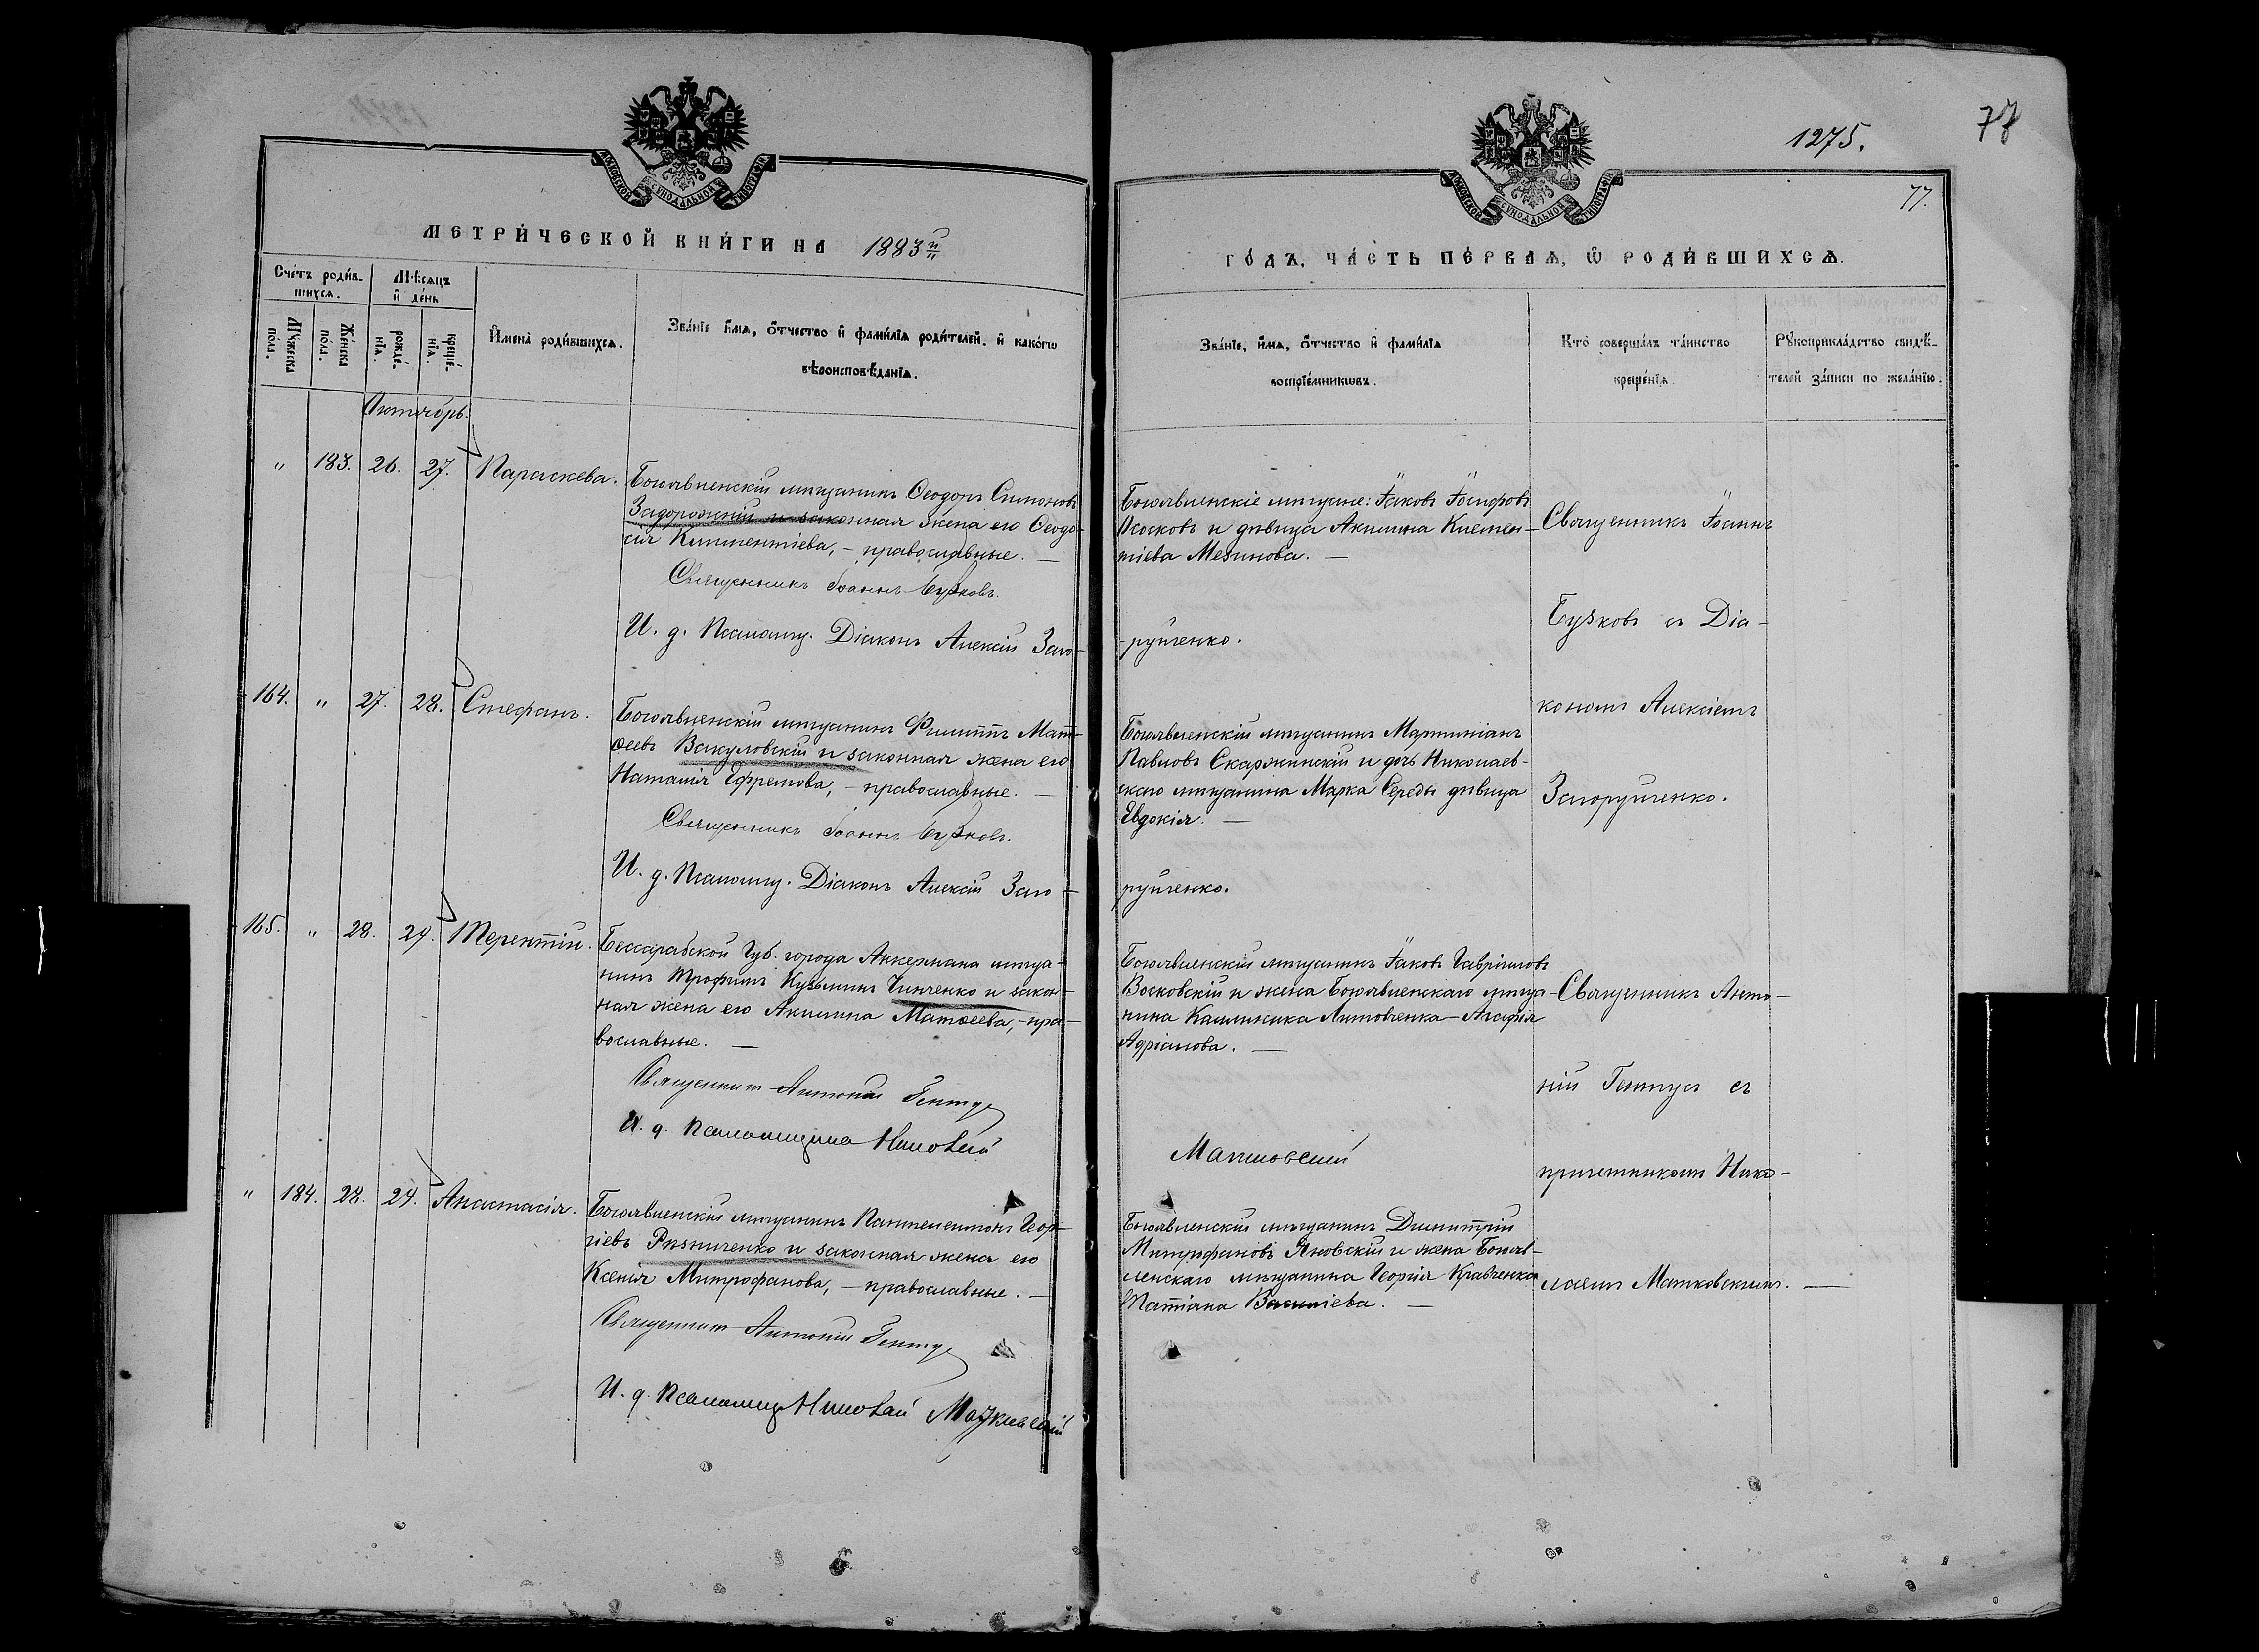 1275.
77
77.
МОСКОВСКОЙ СѴНОДАЛЬНОЙ ТИПОГРАФІИ
МОСКОВСКОЙ СѴНОДАЛЬНОЙ ТИПОГРАФІИ
МЕТРИ́ЧЕСКОЙ КНИ́ГИ НА 1883й
ГО́ДЪ, ЧА́СТЬ ПЕ́РВАѦ, Ѡ РОДИ́ВШИХСѦ.
Сче́тъ роди́в-
шихсѧ.
Мѣ́сѧцъ
и де́нь
Мꙋ́жеска
по́ла.
Же́нска
по́ла.
рожде́-
нїѧ.
креще́-
нїѧ.
Имена̀ роди́вшихсѧ.
Зва́нїе и҆́мѧ, о҆́тчество и҆ фами́лїѧ роди́телей, и҆ како́гѡ
вѣроисповѣ́данїѧ.
Зва́нїе, и҆́мѧ, о҆́тчество и҆ фами́лїѧ
воспрїе́мникѡвъ.
Кто̀ соверша́лъ та́инство
креще́нїѧ
Рꙋкоприкла́дство свидѣ́-
телей за́писи по жела́нїю.
Октябрь.
" 183. 26. 27. Параскева.
Богоявленскій мѣщанинъ Ѳеодоръ Симоновъ
Задорожній и законная жена его Ѳеодо-
сія Климентіева, - православные. —
Священникъ Іоаннъ Бузковъ.
И. д. Псаломщ. Діаконъ Алексій Заго-
Богоявленскіе мѣщане: Іаковъ Іосифовъ
Осоковъ и дѣвица Акилина Климен-
тіева Мезинова. —
-руйченко.
Священникъ Іоаннъ
Бузковъ съ Діа-
кономъ Алексіемъ
Загоруйченко.
164. " 27. 28. Стефанъ.
Богоявленскій мѣщанинъ Филиппъ Мат-
ѳеевъ Вакуловскій и законная жена его
Наталія Ефремова, - православные. —
Священникъ Іоаннъ Бузковъ.
И. д. Псаломщ. Діаконъ Алексій Заго-
Богоявленскій мѣщанинъ Мартиніанъ
Павловъ Скаржинскій и дочь Николаев-
скаго мѣщанина Марка Середы дѣвица
Евдокія. —
руйченко.
165. " 28. 29. Терентій.
Бессарабской Губ. города Аккермана мѣща-
нинъ Трофимъ Кузьминъ Чинченко и закон-
ная жена его Акилина Матѳеева, - пра-
вославные. —
Священникъ Антоній Гентуз
И. д. Псаломщика Николай
Богоявленскій мѣщанинъ Іаковъ Гавріиловъ
Восковскій и жена Богоявленскаго мѣща-
нина Каллиника Литовченка - Агафія
Адріанова. —
Матковскій
Священникъ Анто-
ній Гентуз съ
причетникомъ Нико-
лаемъ Матковскимъ. —
" 184. 28. 29. Анастасія.
Богоявленскій мѣщанинъ Пантелеимонъ Геор-
гіевъ Рѣзниченко и законная жена его
Ксенія Митрофанова, - православные. —
Священникъ Антоній Гентуз
И. д. Псаломщ Николай Матковскій
Богоявленскій мѣщанинъ Димитрій
Митрофановъ Яновскій и жена Богояв-
ленскаго мѣщанина Георгія Кравченка
Татіана Василіева. —